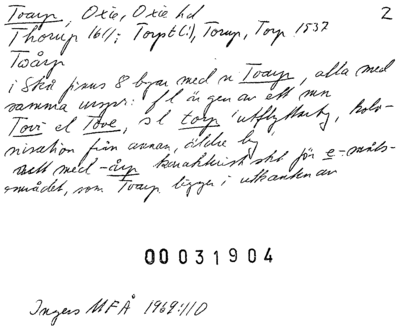 Toarp, Oxie, Oxie hd 2
Thorup 1611; Torpt(!), Torup, Torp 1537
Toårp
i Skå finns 8 byar med n Toarp, alla med
samma urspr: fl är gen av ett mn
Tovi el Tove, sl torp 'utflyttarby, kolo-
nisation från annan, äldre by
uttl med -årp karakteristiskt för e-måls-
området, som Toarp ligger i utkanten av
00031904
Ingers MFÅ 1969:110